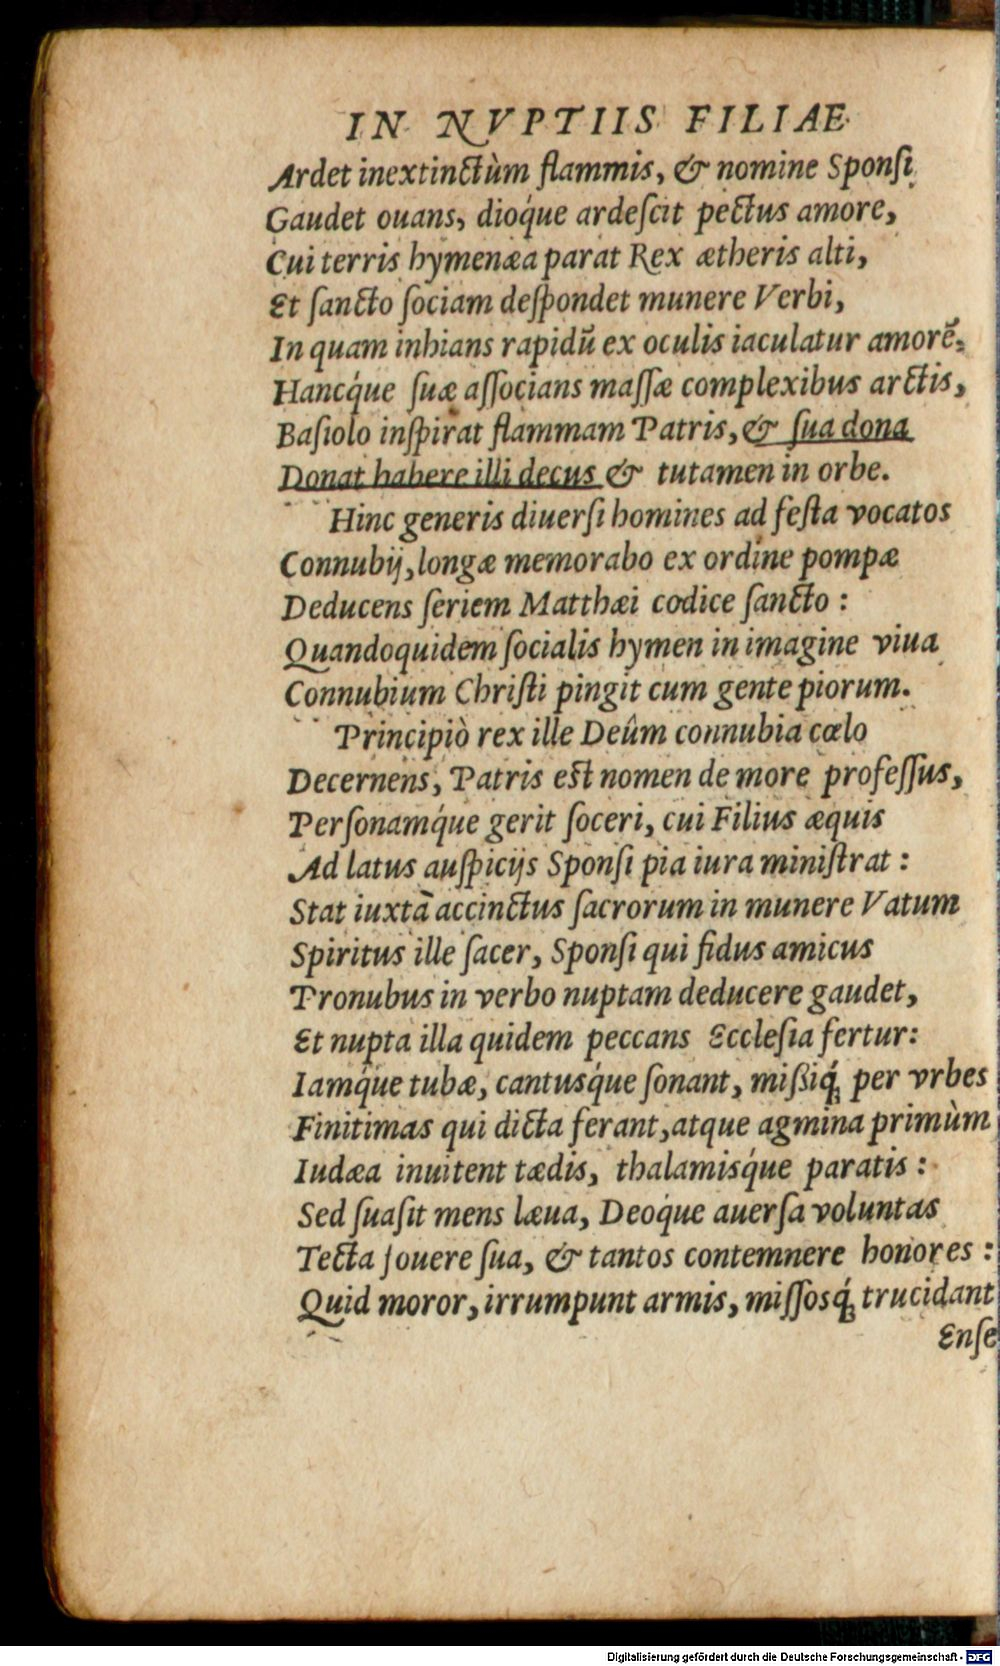 IN NVPTIIS FILIAE
Ardet inextinctùm flammis, & nomine Sponſi
Gaudet ouans, dioq́ue ardeſcit pectus amore,
Cui terris hymenæa parat Rex ætheris alti,
Et ſancto ſociam deſpondet munere Verbi,
In quam inhians rapidū ex oculis iaculatur amorē.
Hancq́ue ſuæ aſſocians maſſæ complexibus arctis,
Baſiolo inſpirat flammam Patris, & ſua dona
Donat habere illi decus & tutamen in orbe.
Hinc generis diuerſi homines ad feſta vocatos
Connubij, longæ memorabo ex ordine pompæ
Deducens ſeriem Matthæi codice ſancto :
Quandoquidem ſocialis hymen in imagine viua
Connubium Chriſti pingit cum gente piorum.
Principiò rex ille Deûm connubia cœlo
Decernens, Patris est nomen de more profeſſus,
Perſonamq́ue gerit ſoceri, cui Filius æquis
Ad latus auſpicijs Sponſi pia iura miniſtrat :
Stat iuxtà accinctus ſacrorum in munere Vatum
Spiritus ille ſacer, Sponſi qui fidus amicus
Pronubus in verbo nuptam deducere gaudet,
Et nupta illa quidem peccans Eccleſia fertur:
Iamq́ue tubæ, cantusq́ue ſonant, mißiq́ꝫ per vrbes
Finitimas qui dicta ferant, atque agmina primùm
Iudæa inuitent tædis, thalamisq́ue paratis :
Sed ſuaſit mens læua, Deoq́ue auerſa voluntas
Tecta fouere ſua, & tantos contemnere honores :
Quid moror, irrumpunt armis, miſſosq́ꝫ trucidant
Enſe
Digitalisierung gefördert durch die Deutsche Forschungsgemeinschaft - DFG